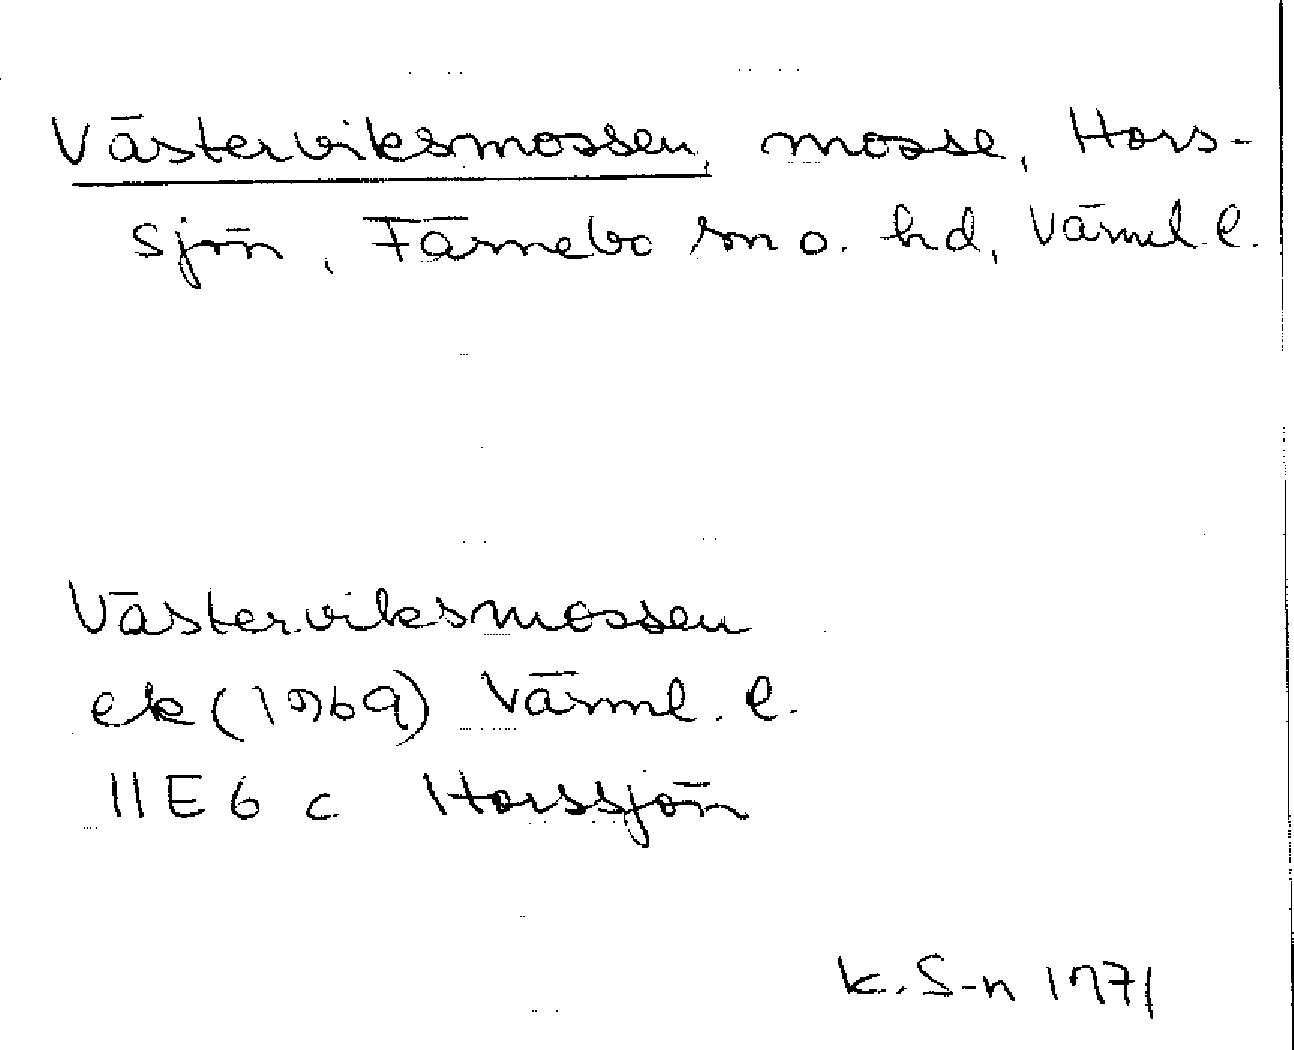 Västerviksmossen, mosse, Hors-
sjön, Färnebo sn o. hd, Värml. l.
Västerviksmossen
ek (1969) Värml. l.
11E 6 c Horssjön
K. S-n 1971